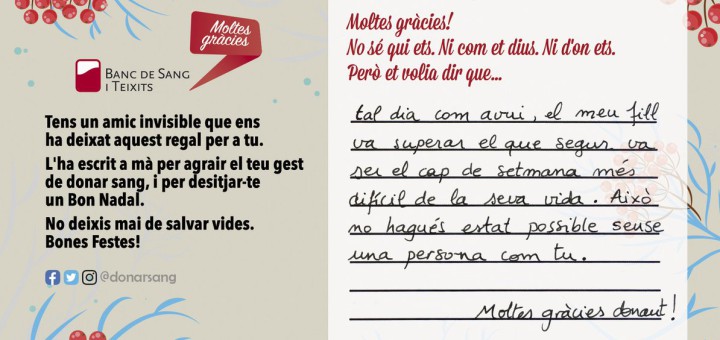 Moltes
gràcies
BANC DE SANG
I TEIXITS
Tens un amic invisible que ens
ha deixat aquest regal per a tu.
L'ha escrit a mà per agrair el teu gest
de donar sang, i per desitjar-te
un Bon Nadal.
No deixis mai de salvar vides.
Bones Festes!
@donarsang
Moltes gràcies!
No sé qui ets. Ni com et dius. Ni d'on ets.
Però et volia dir que...
tal dia com avui, el meu fill
va superar el que segur va
ser el cap de setmana més
difícil de la seva vida. Això
no hagués estat possible sense
una persona com tu.
Moltes gràcies donant!